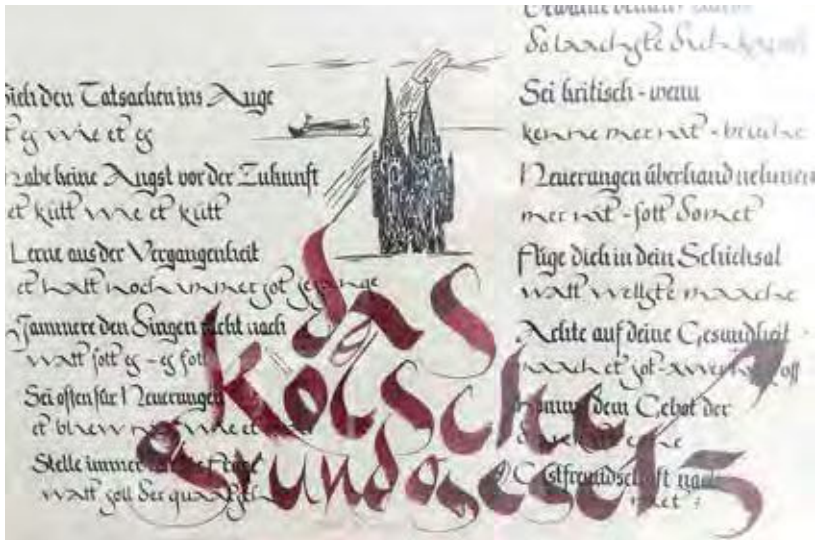 den Tatsachen ins Auge
eß wie et eß
habe keine Angst vor der Zukunft
et kütt wie et kütt
Lerne aus der Vergangenheit
et hätt noch immer jot jejange
Jammere den Dingen nicht nach
watt fott eß - eß fott
Sei offen für Neuerungen
et bliev nix wie et
Stelle immer
watt soll der quatsch
das
kölsche
grundgesetz
Sei kritisch - wenn
kenne mer nit - bruche
Neuerungen überhand nehmen
mer nit - fott domet
füge dich in dein Schicksal
watt wellste maache
Achte auf deine Gesundheit
maach et jot - ävver
dem Gebot der
Gastfreundschaft nach